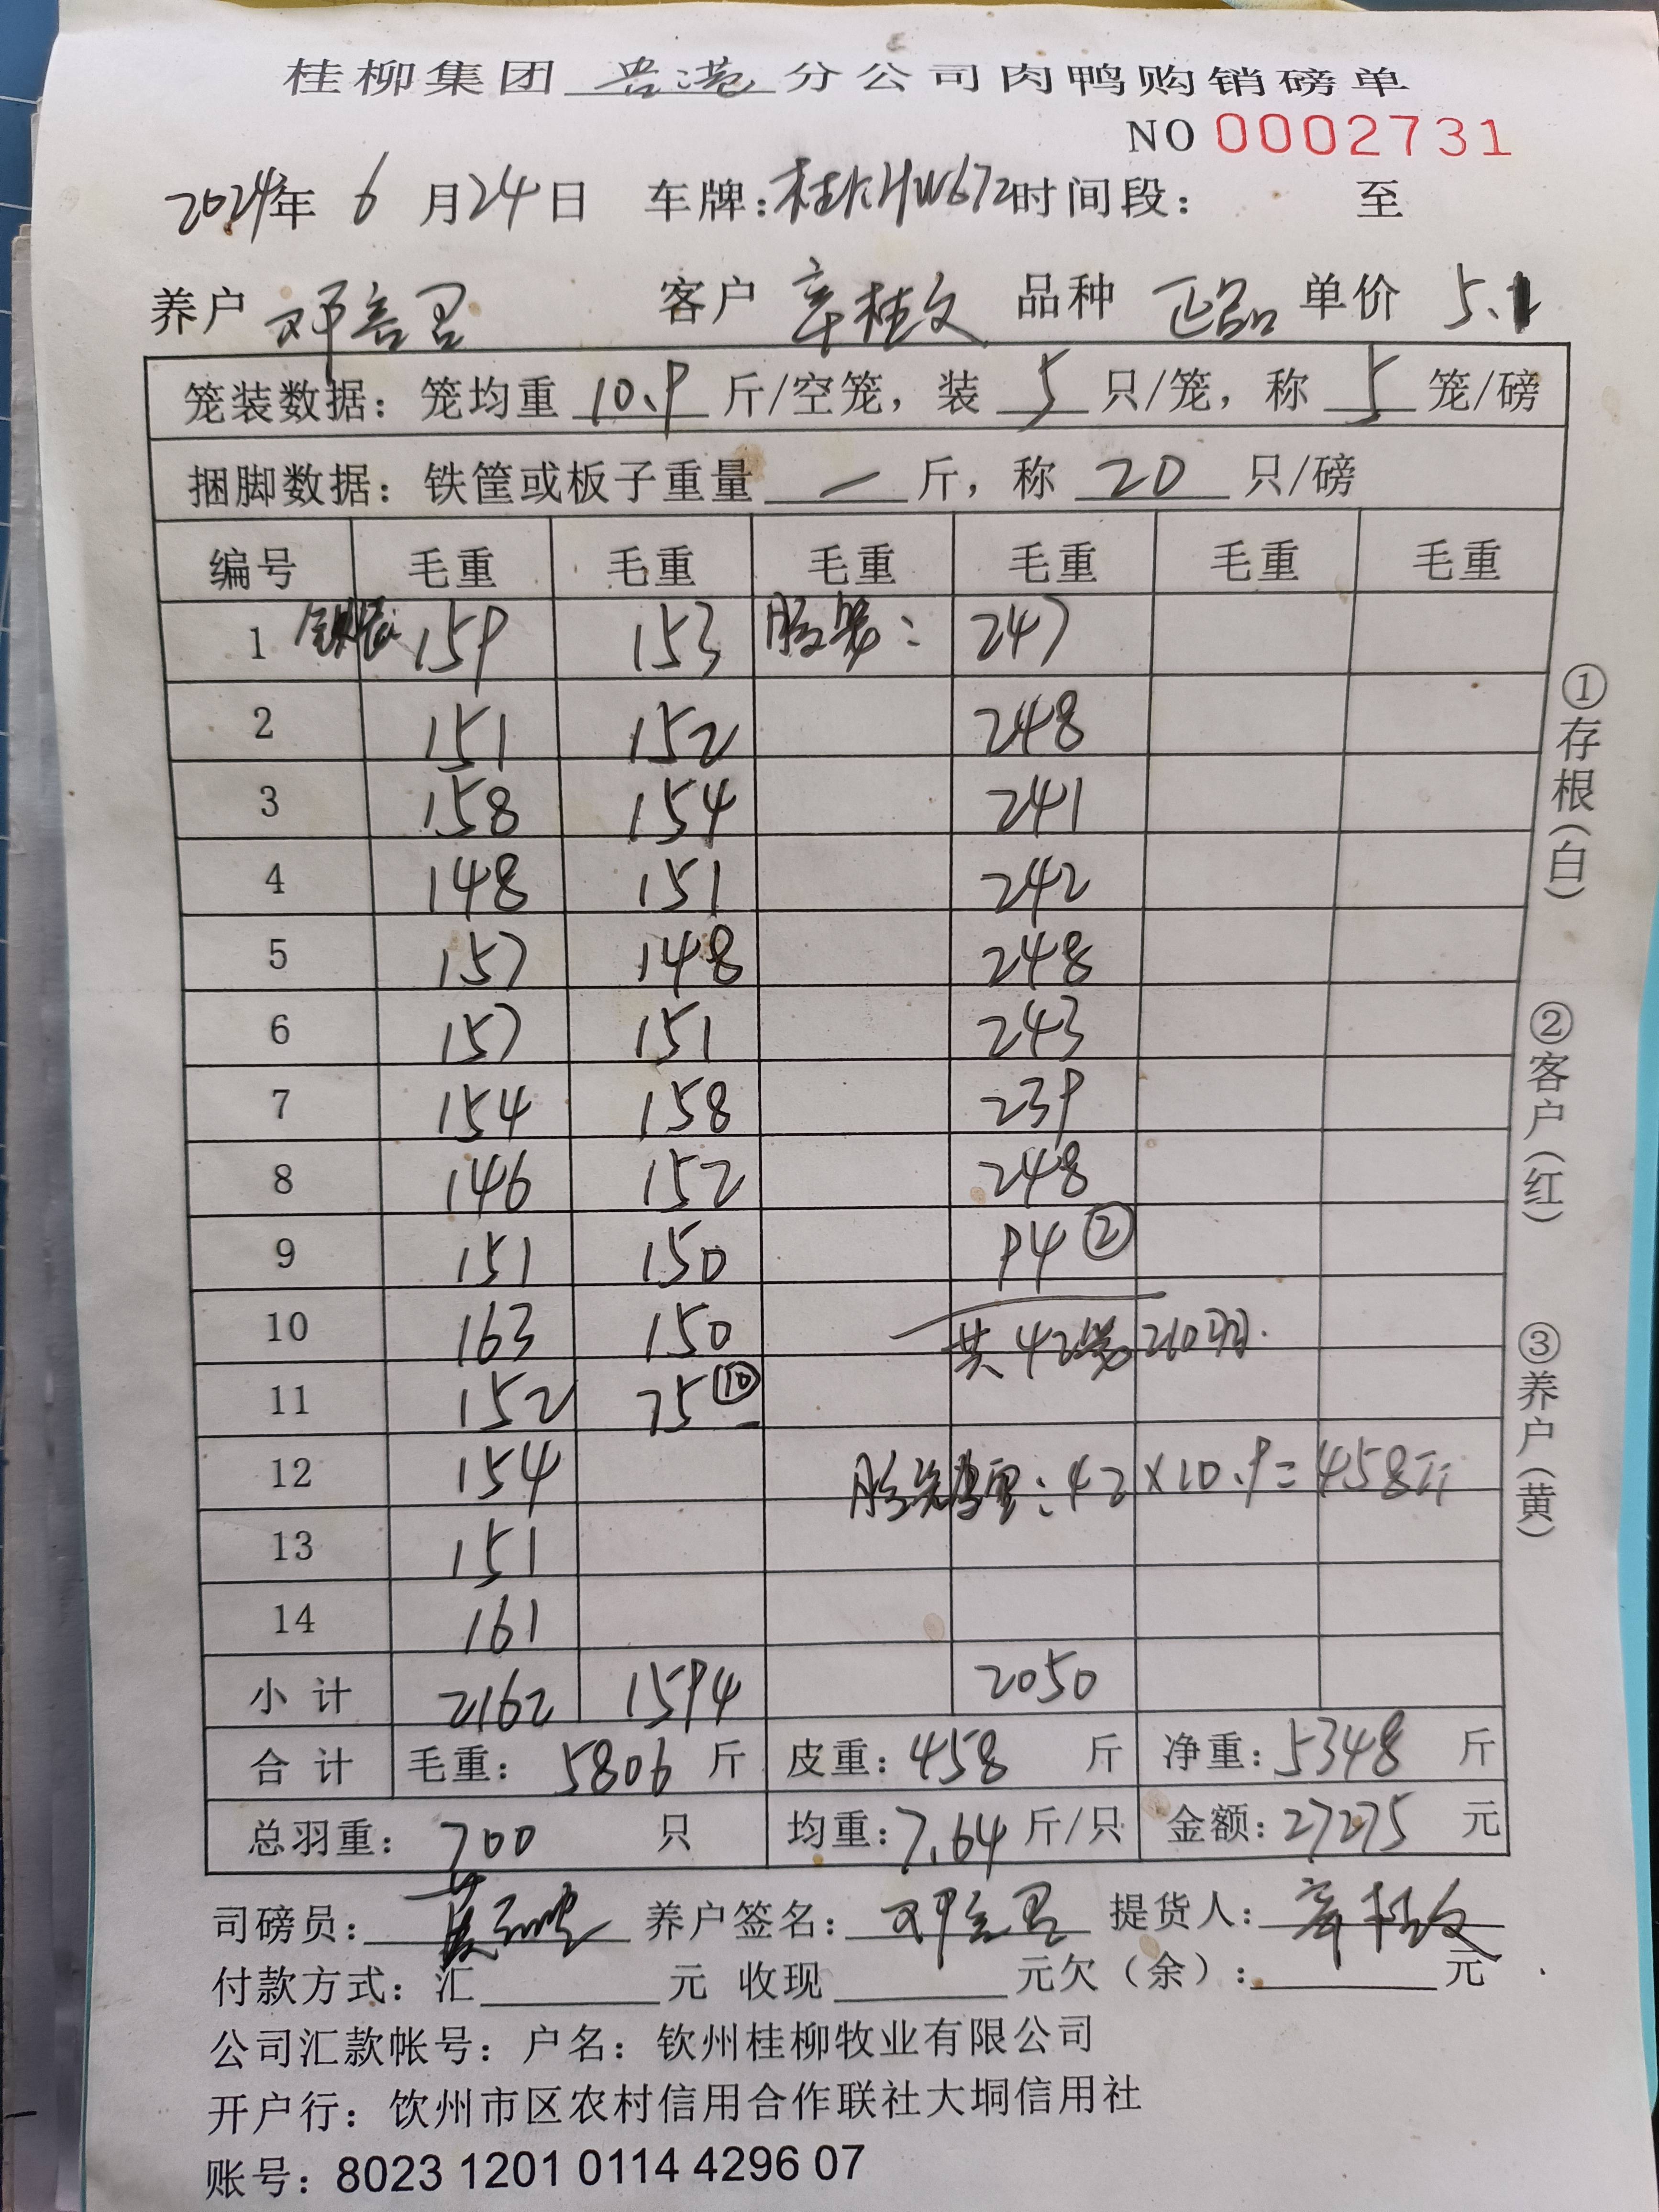 桂柳集团贵港分公司肉鸭购销磅单
NO 0002731
2024年 6 月24日 车牌:桂KHW672时间段: 至
养户 邓 客户 辛桂文 品种 正品 单价 5.1
笼装数据: 笼均重 10.9 斤/空笼, 装 5 只/笼, 称 5 笼/磅
捆脚数据: 铁筐或板子重量 — 斤, 称 20 只/磅
编号 毛重 毛重 毛重 毛重 毛重 毛重
1 159 153 胶笼: 247
2 151 152 248
3 158 154 241
4 148 151 242
5 157 148 248
6 157 151 243
7 154 158 239
8 146 152 248
9 151 150 94 ②
10 163 150 共42笼 210羽.
11 152 75 ⑩
12 154 胶笼重: 42×10.9=458斤
13 151
14 161
小计 2162 1594 2050
合计 毛重: 5806 斤 皮重: 458 斤 净重: 5348 斤
总羽重: 700 只 均重: 7.64 斤/只 金额: 27275 元
司磅员: 养户签名: 邓 提货人: 辛桂文
付款方式: 汇 元 收现 元欠(余): 元
公司汇款帐号: 户名: 钦州桂柳牧业有限公司
开户行: 钦州市区农村信用合作联社大垌信用社
账号: 8023 1201 0114 4296 07
①存根(白)
②客户(红)
③养户(黄)